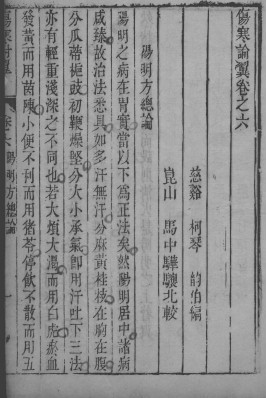 傷寒論翼卷之六
慈谿 柯琴 韵伯編
崑山 馬中驊驤北較
陽明方總論
陽明之病在胃實當以下為正法矣然陽明居中諸病
咸臻故治法悉具如多汗無汗分麻黃桂枝在胸在腹
分瓜蒂梔豉初鞕燥堅分大小承氣即用汗吐下三法
亦有輕重淺深之不同也若大煩大渴而用白虎瘀血
發黃而用茵陳小便不利而用猪苓停飲不散而用五
卷六 陽明方總論 一